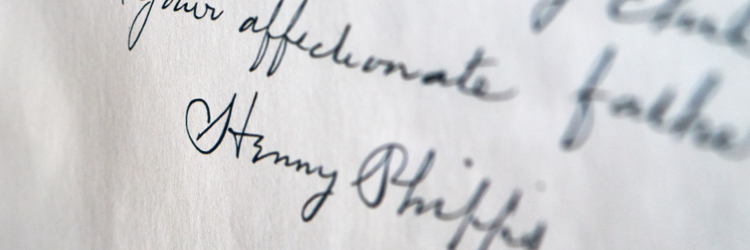 your affectionate father
Henry Phipps